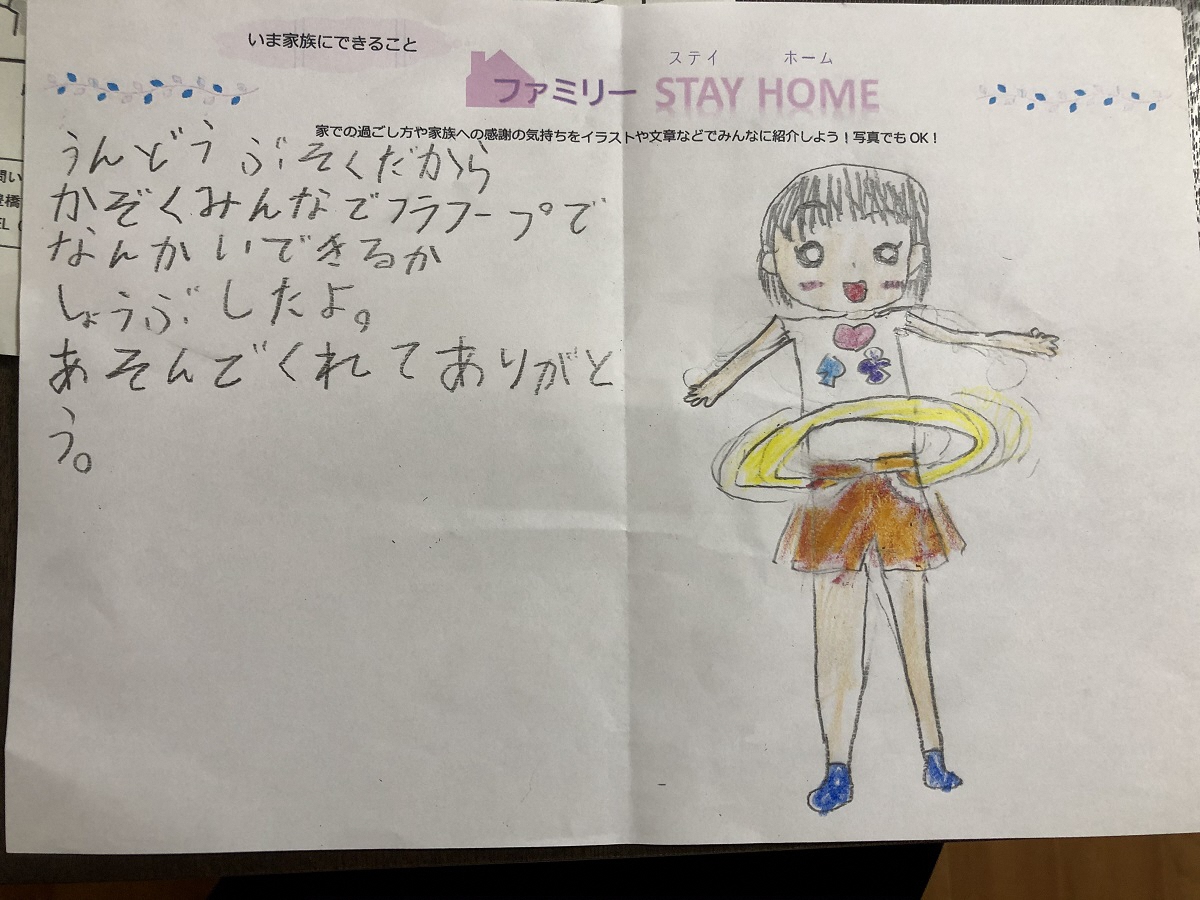 いま家族にできること
ステイ ホーム
ファミリー STAY HOME
家での過ごし方や家族への感謝の気持ちをイラストや文章などでみんなに紹介しよう！写真でもOK！
うんどうぶそくだから
かぞくみんなでフラフープで
なんかいできるか
しょうぶしたよ。
あそんでくれてありがと
う。
問い
豊橋